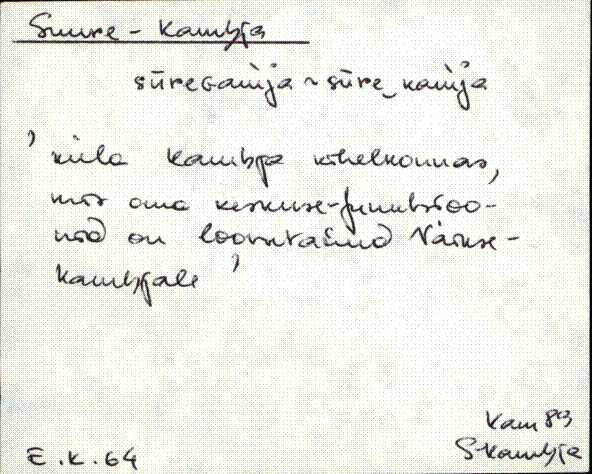 Suure-Kambja
sūreGam̀ja ~ sūre_kam̀ja
'küla Kambja kihelkonnas,
mis oma keskuse-funktsioo-
nid on loovutanud Väike-
Kambjale'
Kam 89
E.K.64 S-Kambja